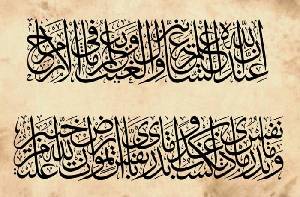 إن الله عنده علم الساعة وينزل الغيث ويعلم ما في الأرحام
وما تدري نفس ماذا تكسب غدا وما تدري نفس بأي أرض تموت إن الله عليم خبير